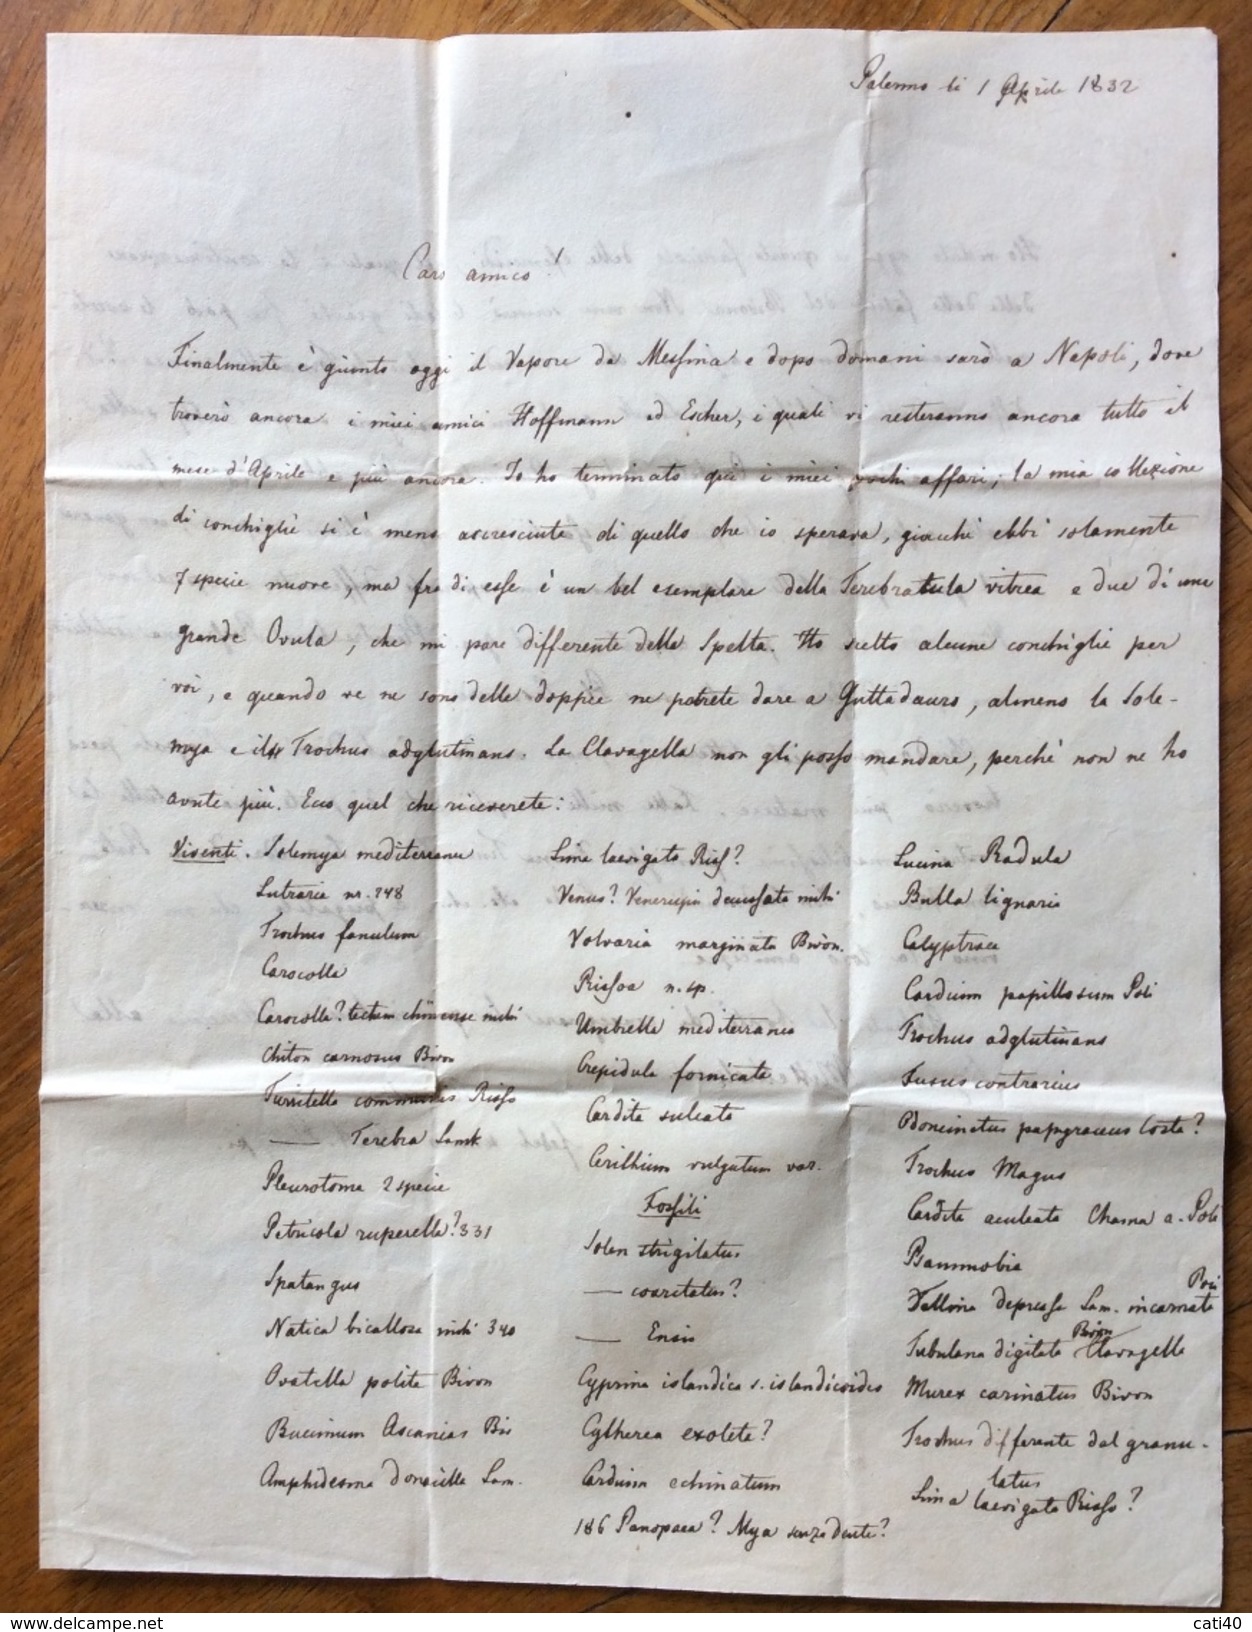 Palermo li 1 Aprile 1832
Caro amico!
Finalmente è giunto oggi il Vapore da Messina e dopo domani sarò a Napoli, dove
troverò ancora i miei amici Hoffmann ed Escher, i quali vi resteranno ancora tutto il
mese d'Aprile e più ancora. Io ho terminato qui i miei affari; la mia collezione
di conchiglie si è meno accresciuta di quello che io sperava, giacchè ebbi solamente
7 specie nuove, ma fra di esse è un bel esemplare della Terebratula vitrea e due di una
grande Ovula, che mi pare differente della Spelta. Ho scelto alcune conchiglie per
voi, e quando ve ne sono delle doppie ne potrete dare a Guttadauro, almeno la Sole-
mya e il Trochus adglutinans. La Clavagella non gli posso mandare, perchè non ne ho
avute più. Ecco quel che riceverete:
Viventi. Solemya mediterranea
Lutraria nr. 248
Trochus fanulum
Carocolla
Carocolla? tectum chinense mihi
Chiton carnosus Bivon
Turritella communis Risso
— Terebra Lamk
Pleurotoma 2 specie
Petricola ruperella? 331
Spatangus
Natica bicallosa mihi 340
Ovatella polita Bivon
Buccinum Ascanias Biv
Amphidesma donacilla Lam.
Lima laevigata Riss?
Venus? Venerupis decussata mihi
Volvaria marginata Bivon.
Rissoa n. sp.
Umbrella mediterranea
Crepidula fornicata
Cardita sulcata
Cerithium vulgatum var.
Fossili
Solen strigilatus
— coarctatus?
— Ensis
Cyprina islandica s. islandicoides
Cytherea exoleta?
Cardium echinatum
186 Panopaea? Mya senza dente?
Lucina Radula
Bulla lignaria
Calyptraea
Cardium papillosum Poli
Trochus adglutinans
Fusus contrarius
papyraceus Costa?
Trochus Magus
Cardita aculeata Chama a. Poli
Psammobia
Poli
Tellina depressa Lam. incarnata
Bivon
Tubulana digitata Clavagella
Murex carinatus Bivon
Trochus differente dal granu-
latus
Lima laevigata Risso?
delcampe.net
cati40